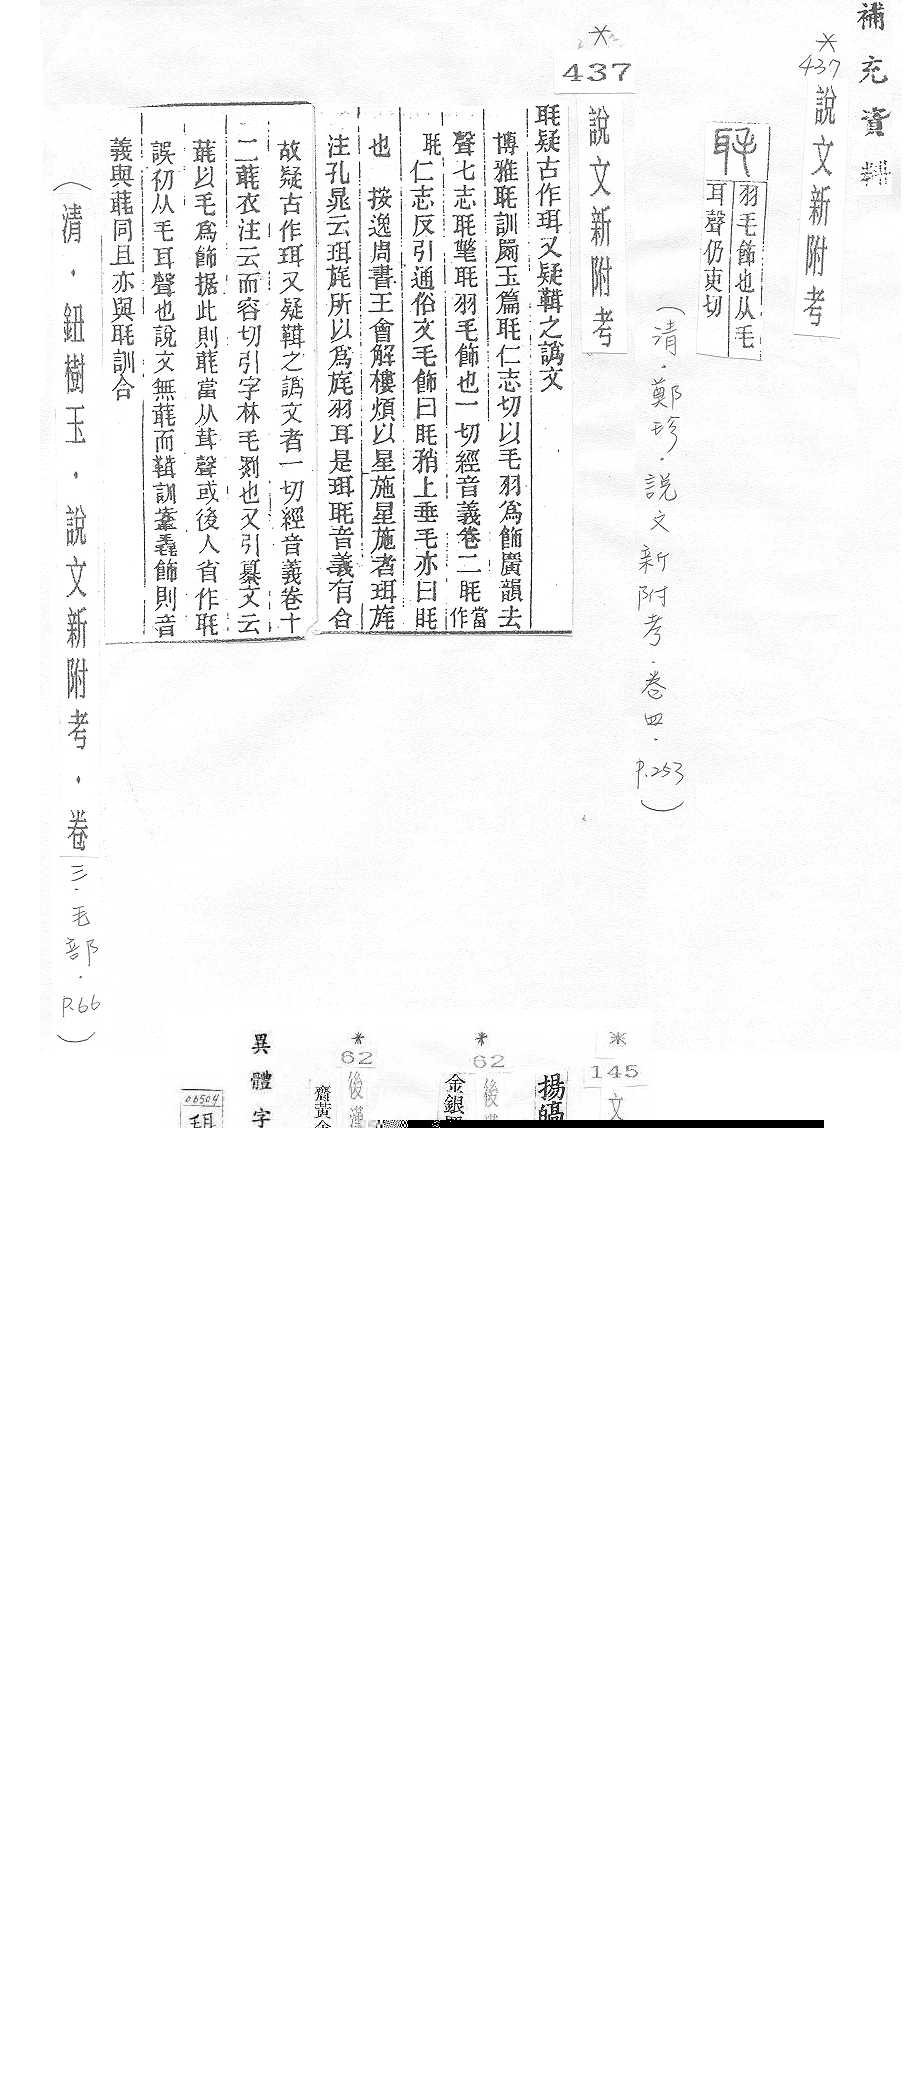 補充資料
*
437
說文新附考
羽毛飾也从毛
耳聲仍吏切
（清．鄭珍．說文新附考．卷四．P.253）
*
437
說文新附考
毦疑古作珥又疑鞾之譌文
博雅毦訓罽玉篇毦仁志切以毛羽為飾廣韻去
聲七志毦氅毦羽毛飾也一切經音義卷二毦當作
毦仁志反引通俗文毛飾曰毦稍上垂毛亦曰毦
也 按逸周書王會解樓煩以星施星施者珥旄
注孔晁云珥旄所以為旄羽耳是珥毦音義有合
故疑古作珥又疑鞾之譌文者一切經音義卷十
二氄衣注云而容切引字林毛罽也又引纂文云
以毛為飾据此則當从茸聲或後人省作毦
誤初从毛耳聲也說文無而訓飾則音
義與同且亦與毦訓合
（清．鈕樹玉．說文新附考．卷三．毛部．P.66）
*
145
文
揚
*
62
後漢
金銀
*
62
後漢
齎黃金
異體字
06504